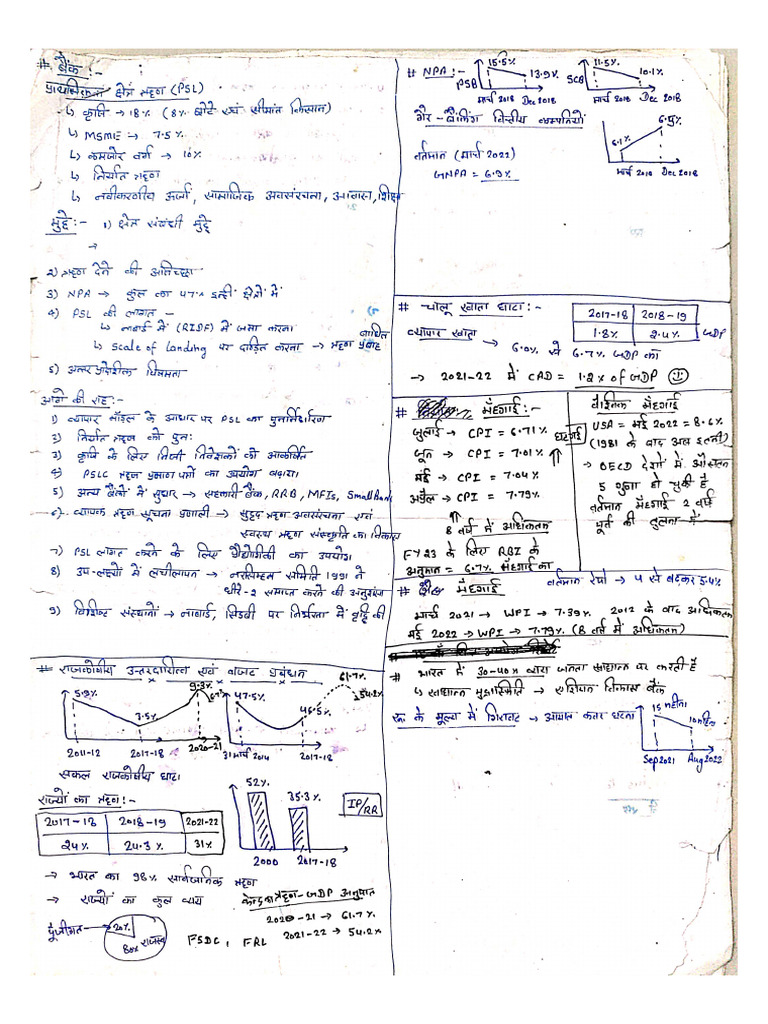 # बैंक :-
प्राथमिकता क्षेत्र ऋण (PSL)
↳ कृषि → 18% (8% छोटे एवं सीमांत किसान)
↳ MSME → 7.5%
↳ कमजोर वर्ग → 10%
↳ निर्यात ऋण
↳ नवीकरणीय ऊर्जा, सामाजिक अवसंरचना, आवास, शिक्षा
मुद्दे :- 1) क्षेत्र संबंधी मुद्दे
→
2) ऋण देने की अनिच्छा
3) NPA → कुल का 47% इन्हीं क्षेत्रों में
4) PSL की लागत -
↳ नाबार्ड में (RIDF) में जमा करना
↳ Scale of Landing पर दंडित करना → ऋण प्रवाह बाधित
5) अन्तर प्रादेशिक विषमता
आगे की राह :-
1) व्यापार मॉडल के आधार पर PSL का पुनर्निर्धारण
2) निर्यात ऋण को पुनः
3) कृषि के लिए निजी निवेशकों को आकर्षित
4) PSLC ऋण प्रमाण पत्रों का उपयोग बढ़ाना।
5) अन्य बैंकों में सुधार → सहकारी बैंक, RRB, MFIs, Small Bank
6) व्यापक ऋण सूचना प्रणाली → सुदृढ़ ऋण अवसंरचना एवं
स्वस्थ ऋण संस्कृति का विकास
7) PSL लागत करने के लिए प्रौद्योगिकी का उपयोग
8) उप-लक्ष्यों में लचीलापन → नरसिम्हन समिति 1991 ने
धीरे-2 समाप्त करने की अनुशंसा की
9) विशिष्ट संस्थानों → नाबार्ड, सिडबी पर निर्भरता में वृद्धि
# राजकोषीय उत्तरदायित्व एवं बजट प्रबंधन
5.9% 7.5% 9.3%
2011-12 2017-18 2020-21
सकल राजकोषीय घाटा
47.5% 46.5% 61.7% 54.2%
31 मार्च 2014 2017-18
राज्यों का ऋण :-
2017-18 2018-19 2021-22
24% 24.3% 31%
52% 35.3%
2000 2017-18
IP/RR
→ भारत का 98% सार्वजनिक ऋण
→ राज्यों का कुल व्यय
पूंजीगत 20%
80% राजस्व
केन्द्र का ऋण-GDP अनुपात
2020-21 → 61.7%
2021-22 → 54.2%
FSDC, FRL
# NPA :-
PSB 15.5% 13.9%
मार्च 2018 Dec 2018
SCB 11.5% 10.1%
मार्च 2018 Dec 2018
गैर-बैंकिंग वित्तीय कम्पनियाँ
6.1%
मार्च 2018 Dec 2018
वर्तमान (मार्च 2022)
GNPA = 6.9%
# चालू खाता घाटा :-
2017-18 2018-19
1.8% 2.4% GDP
व्यापार खाता
→ 6.0% से 6.7% GDP का
→ 2021-22 में CAD = 1.2% of GDP
# मँहगाई :-
जुलाई → CPI = 6.71%
जून → CPI = 7.01%
मई → CPI = 7.04%
अप्रैल → CPI = 7.79%
8 वर्ष में अधिकतम
FY23 के लिए RBI के
अनुमान = 6.7% मँहगाई का
वैश्विक मँहगाई
USA = मई 2022 = 8.6%
(1981 के बाद अब इतनी)
→ OECD देशों में औसतन
5 गुना हो चुकी है
वर्तमान मँहगाई 2 वर्ष
पूर्व की तुलना में
वर्तमान रेपो → 4 से बढ़कर 5.4%
# थोक मँहगाई
मार्च 2021 → WPI → 7.39% 2012 के बाद अधिकतम
मई 2022 → WPI → 7.79% (8 वर्ष में अधिकतम)
# भारत में 30-40% व्यय जनता खाद्यान्न पर करती है
↳ खाद्यान्न मुद्रास्फीति → एशियन विकास बैंक
रू० के मूल्य में गिरावट → आयात कवर घटना
15 महीना 10 महीना
Sep 2021 Aug 2022